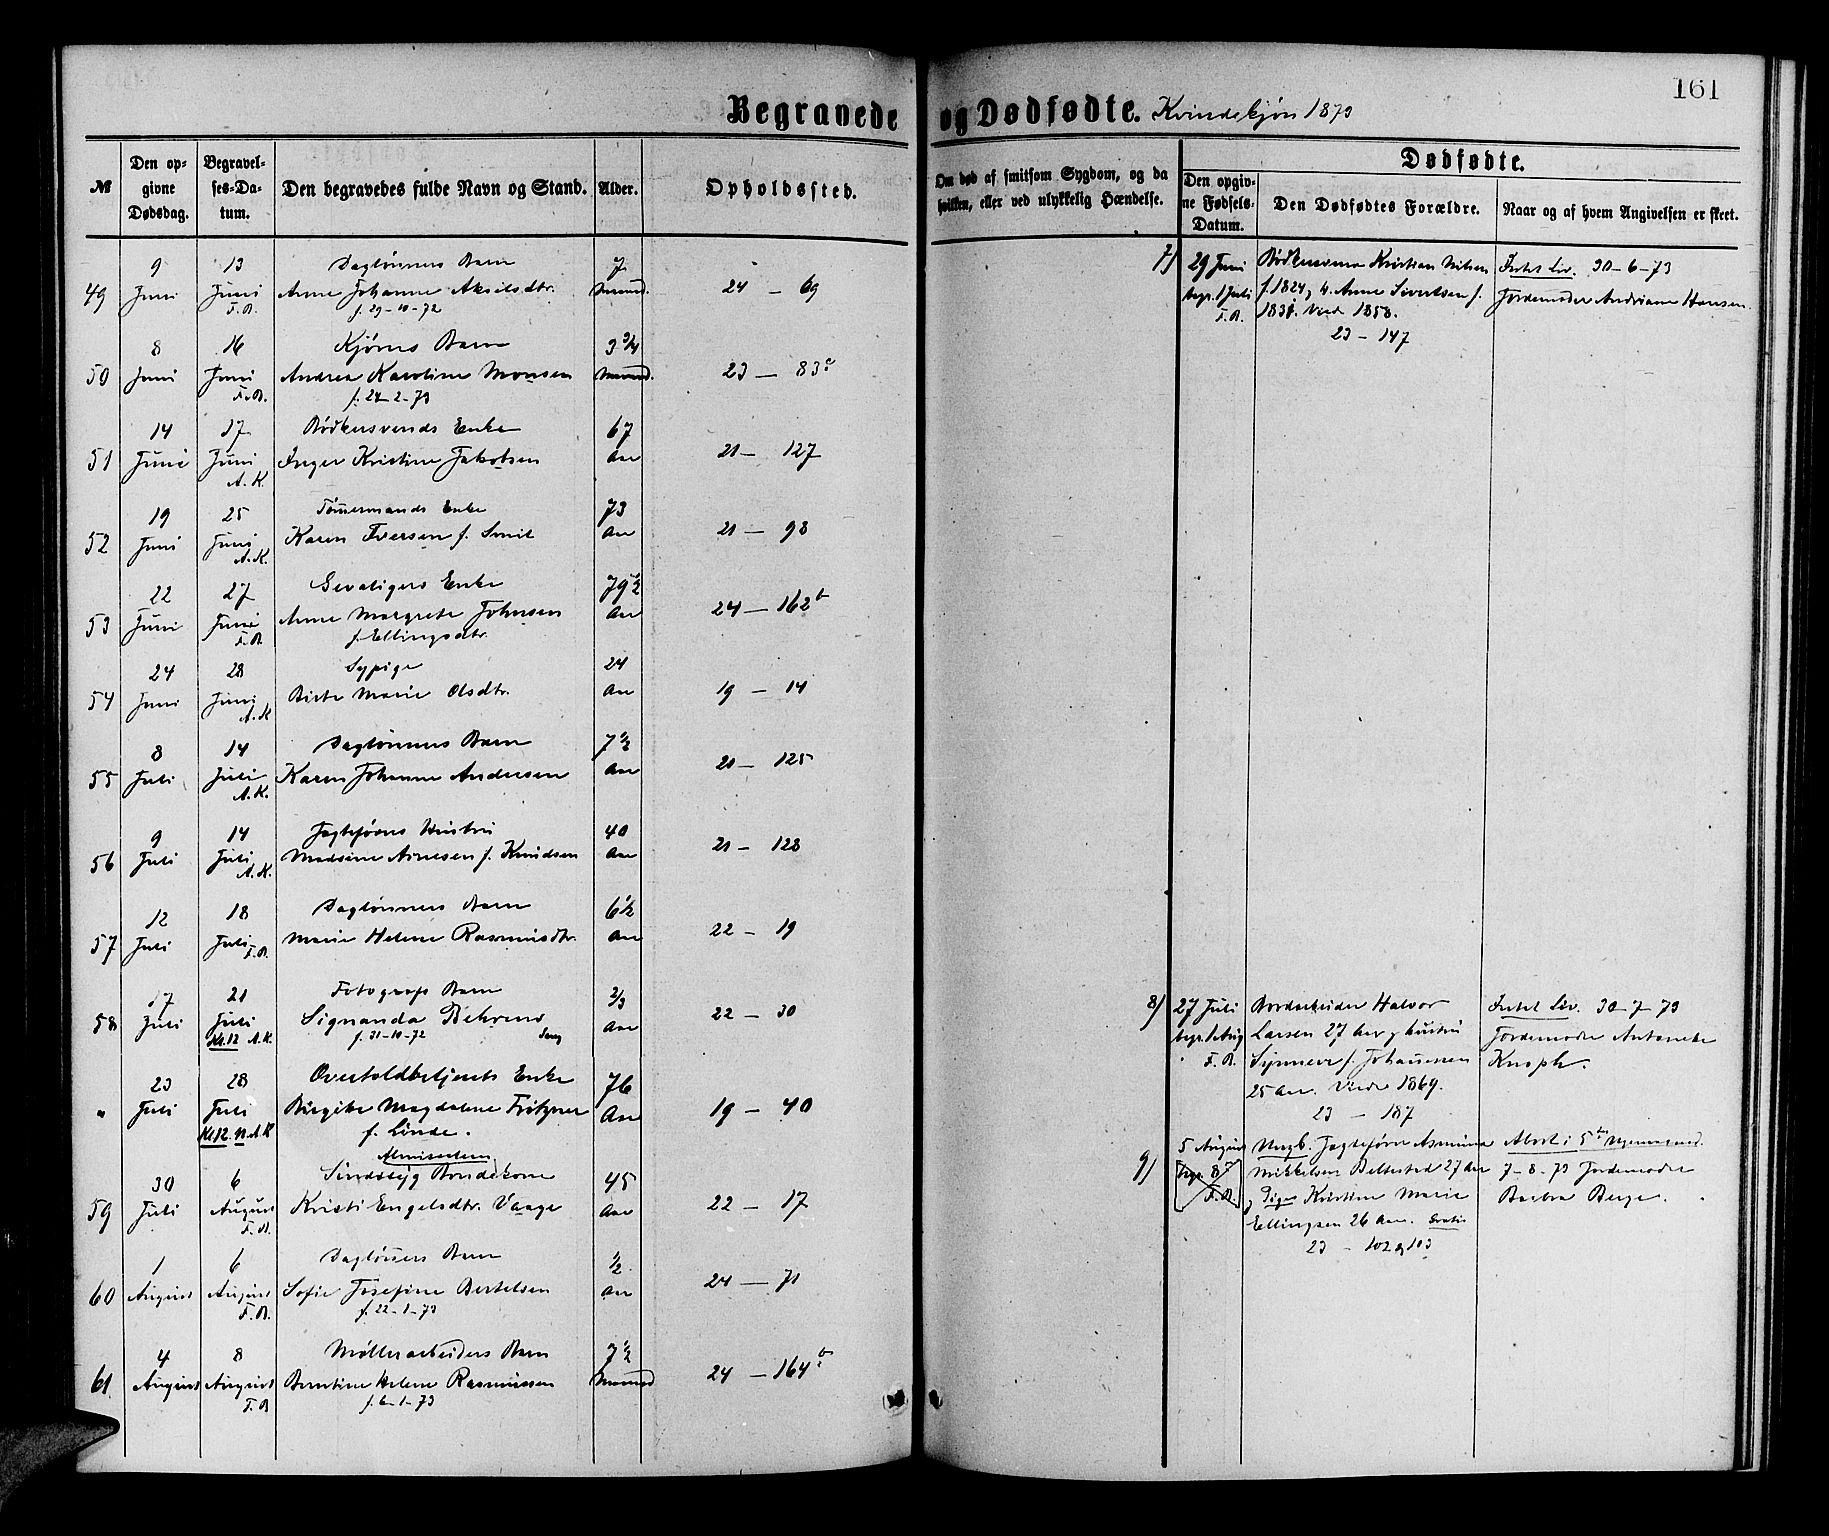 161
Begravede og Dødfødte. Kvindekjøn 1873
№
Den op-
givne
Dødsdag.
Begravel-
ses-Da-
tum.
Den begravedes fulde Navn og Stand.
Alder.
Opholdssted.
Om død af smitsom Sygdom, og da
hvilken, eller ved ulykkelig Hændelse.
Dødfødte.
Den opgiv-
ne Fødsels-
Datum.
Den Dødfødtes Forældre.
Naar og af hvem Angivelsen er skeet.
9 13 Daglønners Barn 7
49 Juni Juni Anne Johanne Akselsdtr. Maaned. 24 — 69
F.B. f. 29-10-72
8 16 Kjørers Barn 3 3/4
50 Juni Juni Andrea Karoline Monsen Maaned. 23 — 83 c
F.B. f. 24-2-73
14 17 Bødkersvends Enke 67
51 Juni Juni Inger Kristine Jakobsen Aar 21 — 127
A.K.
19 25 Tømmermands Enke 73
52 Juni Juni Karen Iversen f. Smit Aar 21 — 98
A.K.
22 27 Gevaltigers Enke 79 1/2
53 Juni Juni Anne Margrete Johnsen Aar 24 — 162 b
F.B. f. Ellingsdtr.
24 28 Sypige 24
54 Juni Juni Birte Marie Olsdtr. Aar 19 — 14
A.K
8 14 Daglønners Barn 7 1/2
55 Juli Juli Karen Johanne Andersen Aar 21 — 125
A.K.
9 14 Jagteførers Hustru 40
56 Juli Juli Madsine Arnesen f. Knudsen Aar 21 — 128
A.K.
12 18 Daglønners Barn 6 1/2
57 Juli Juli Marie Helene Rasmusdtr. Aar 22 — 19
F.B.
17 21 Fotografs Barn 2/3
58 Juli Juli Signanda Behrens Aar 22 — 30
Kl.12 A.K. f. 31-10-72
23 28 Overtoldbetjents Enke 76
" Juli Juli Birgitte Magdalene Fritzner Aar 19 — 40
Kl.12 A.K f. Linde.
30 6 Sindssyg Bondekone 45
59 Juli August Kristi Engelsdtr. Vaage Aar 22 — 17
1 6 Daglønners Barn 1/2
60 August August Sofie Josefine Bertelsen Aar 24 — 71
F.B. f. 22-1-73
4 8 Møllerarbeiders Barn 7 1/2
61 August August Berntine Helene Rasmussen Maaned 24 — 164 b
F.B f. 6-1-73
7) 29 Juni Bødkersvend Kristian Nilsen Intet Liv. 30-6-73
begr. 1 Juli f. 1824, H. Anne Sivertsen f. Jordemoder Andriane Hansen.
F.B. 1831. Viede 1858.
23 — 147
8) 27 Juli Bordarbeider Halvor Intet Liv. 30-7-73
begr. 1 Aug Larsen 27 Aar og Hustru Jordemoder Antonette
F.B. Synneve f. Johannesen Knoph.
25 Aar. Viede 1869.
23 — 187
9) 5 August Uægb. Jagtefører Asmund Abort i 5te Maaned.
begr. 8 Mikkelsen 27 Aar 7-8-73 Jordemoder
F.B. og Pige Kristine Marie Barbra Berge.
Ellingsen 26 Aar. Gratis
23 — 102 & 103